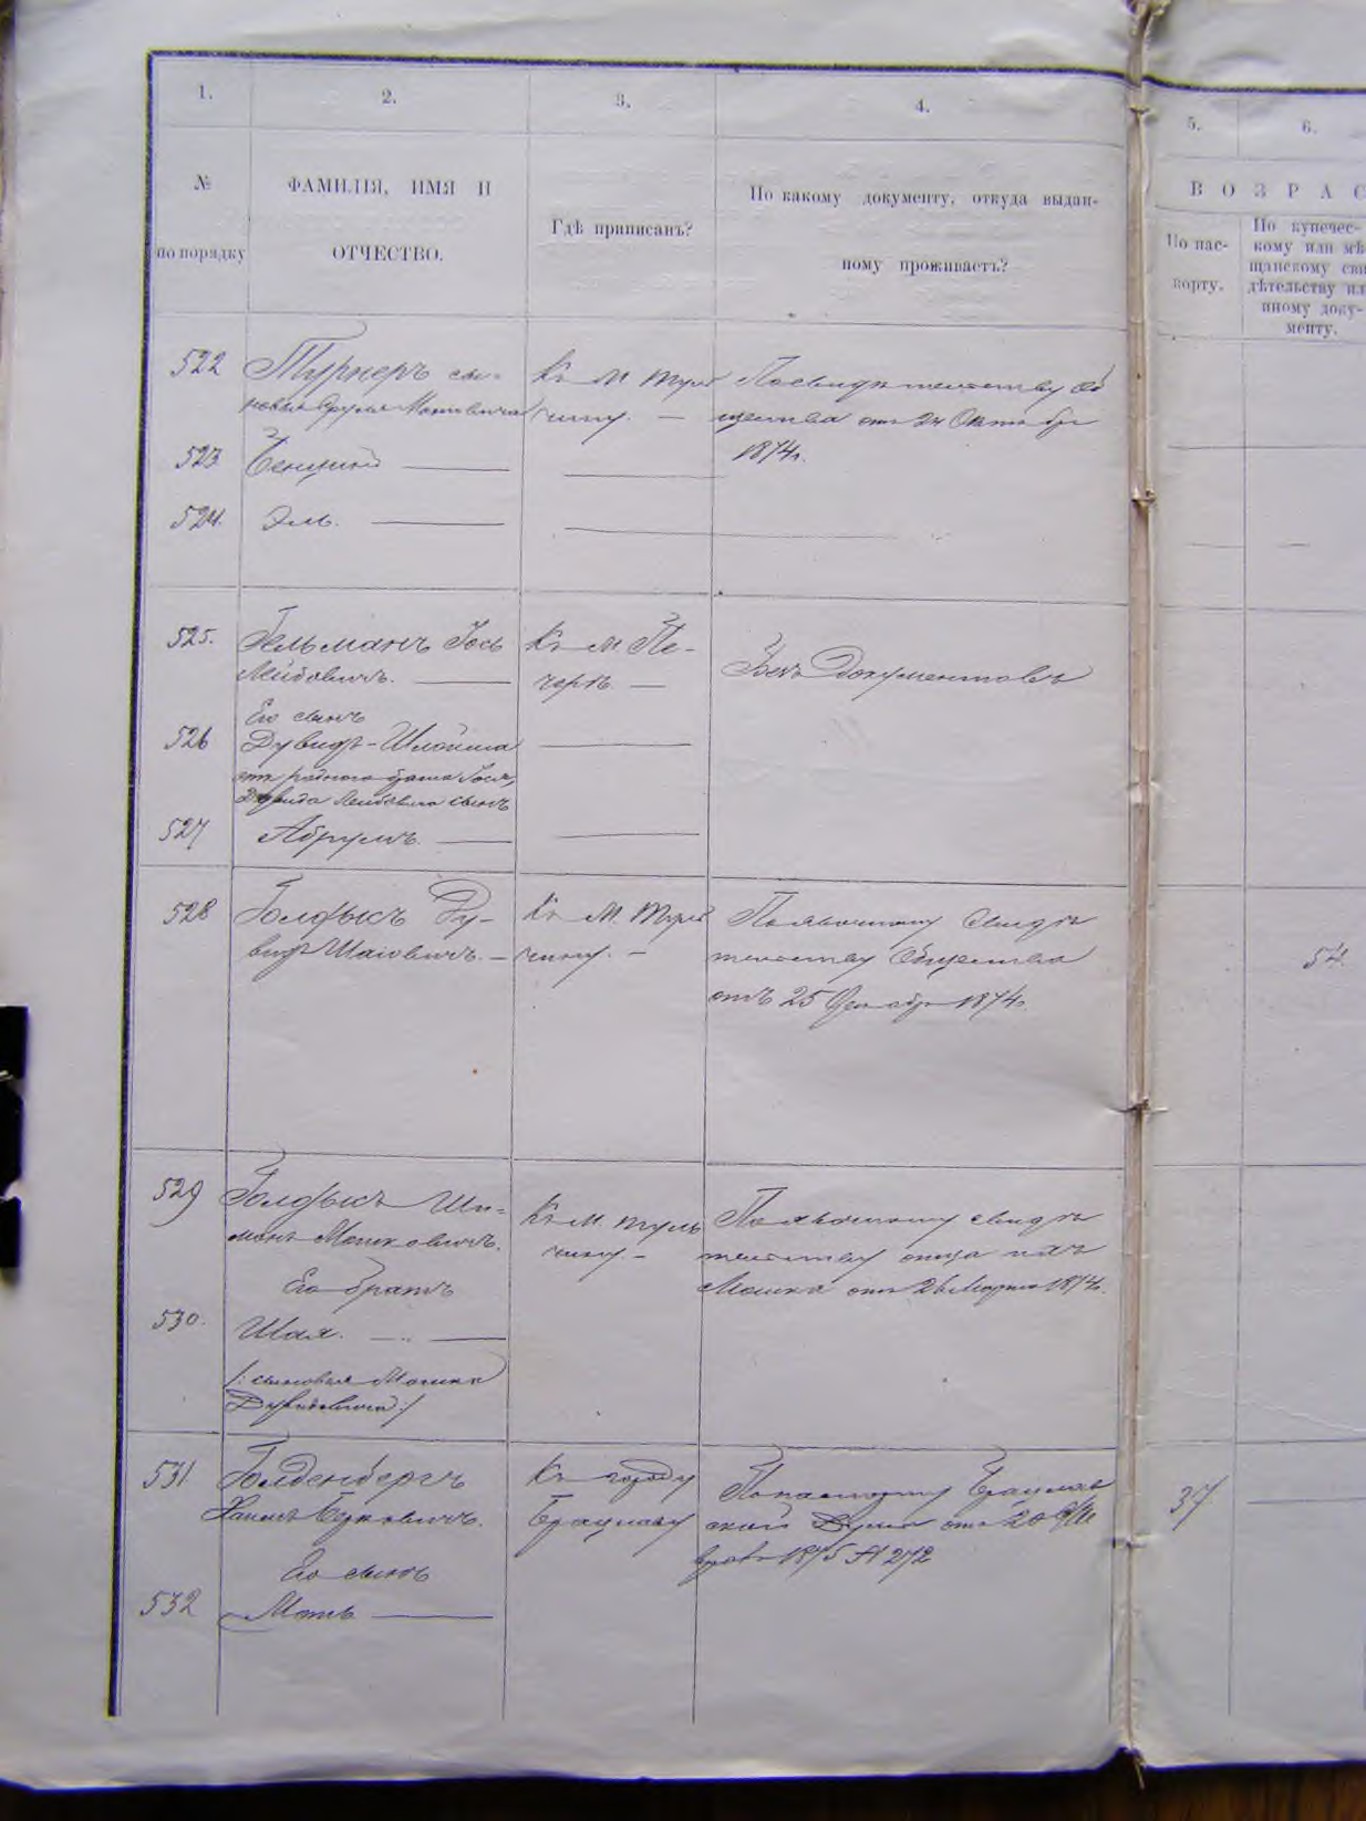 1.
2.
3.
4.
5.
6.
№
по порядку
ФАМИЛІЯ, ИМЯ И
ОТЧЕСТВО.
Гдѣ приписанъ?
По какому документу, откуда выдан-
ному проживаетъ?
ВОЗРАС
По пас-
порту.
По купечес-
кому или мѣ
щанскому сви
дѣтельству ил
иному доку-
менту.
522
Турнеръ сы-
новья
Къ м. Туль
чину. —
По свидѣтельству Об
щества отъ 24 Октября
1874 г.
523
Бенціонъ
524.
Эль.
525.
Гельманъ Іось
Лейбовичъ.
Къ м. Пе-
черѣ. —
Безъ Документовъ
Его сынъ
526
Дувидъ-Шлойма
Дувида Лейбовича сынъ
527
Абрумъ.
528
Голдысъ Ду-
видъ Шаіовичъ. —
Къ М. Туль
чину. —
По явочному свидѣ
тельству Общества
отъ 25 Декабр 1874 г.
54.
529
Голдысъ Ши-
монъ Мошковичъ.
Къ м. Туль
чину. —
По явочному свидѣ
тельству отца ихъ
Мошка отъ 26 Марта 1874 г.
Его братъ
530.
Шая.
/: сыновья Мошка
Дувидовича :/
531
Голденбергъ
Хаимъ Берковичъ.
Къ городу
Брацлаву
По паспорту Брацлав
ской Думы отъ 20
1875 № 272
37
Его сынъ
532
Моть